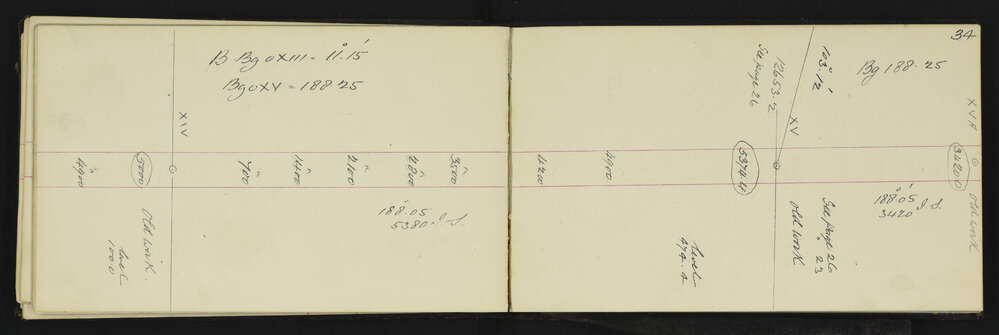 34
B Bg o XIII = 11°.15'
Bg o XV = 188.25
XIV
4900
5000
700
1400
2100
2800
3500
188.05
5380 I.S.
old work
level
1000
4200
4900
5374.4
See page 26
12653.2
103°.12'
XV
Bg 188.25
XVA
34200
188°.05'
3420 I.S.
old work
See page 26
23
old work
level
474.4